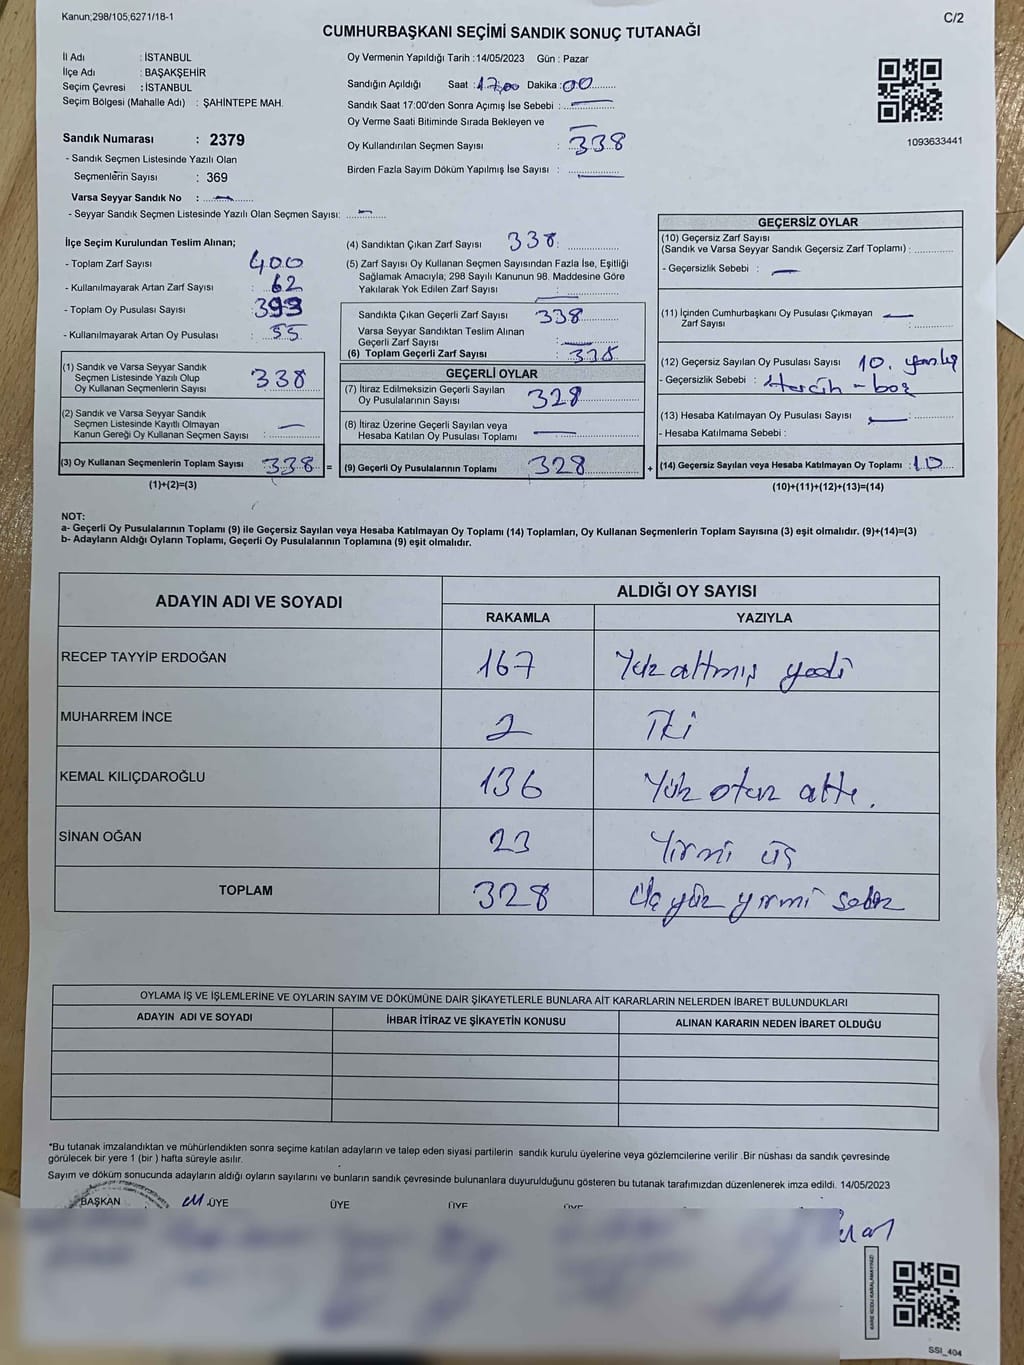 Kanun;298/105,6271/18-1
C/2
CUMHURBAŞKANI SEÇİMİ SANDIK SONUÇ TUTANAĞI
İl Adı : İSTANBUL
İlçe Adı : BAŞAKŞEHİR
Seçim Çevresi : İSTANBUL
Seçim Bölgesi (Mahalle Adı) : ŞAHİNTEPE MAH.
Oy Vermenin Yapıldığı Tarih :14/05/2023 Gün : Pazar
Sandığın Açıldığı Saat :17.00 Dakika :00
Sandık Saat 17:00'den Sonra Açımış İse Sebebi :
Oy Verme Saati Bitiminde Sırada Bekleyen ve
Oy Kullandırılan Seçmen Sayısı : 338
Birden Fazla Sayım Döküm Yapılmış İse Sayısı :
1093633441
Sandık Numarası : 2379
- Sandık Seçmen Listesinde Yazılı Olan
Seçmenlerin Sayısı : 369
Varsa Seyyar Sandık No :
- Seyyar Sandık Seçmen Listesinde Yazılı Olan Seçmen Sayısı:
İlçe Seçim Kurulundan Teslim Alınan;
- Toplam Zarf Sayısı 400
- Kullanılmayarak Artan Zarf Sayısı : 62
- Toplam Oy Pusulası Sayısı : 393
- Kullanılmayarak Artan Oy Pusulası : 55
(1) Sandık ve Varsa Seyyar Sandık
Seçmen Listesinde Yazılı Olup
Oy Kullanan Seçmenlerin Sayısı 338
(2) Sandık ve Varsa Seyyar Sandık
Seçmen Listesinde Kayıtlı Olmayan
Kanun Gereği Oy Kullanan Seçmen Sayısı :
(3) Oy Kullanan Seçmenlerin Toplam Sayısı 338 =
(1)+(2)=(3)
(4) Sandıktan Çıkan Zarf Sayısı 338
(5) Zarf Sayısı Oy Kullanan Seçmen Sayısından Fazla İse, Eşitliği
Sağlamak Amacıyla; 298 Sayılı Kanunun 98. Maddesine Göre
Yakılarak Yok Edilen Zarf Sayısı :
Sandıkta Çıkan Geçerli Zarf Sayısı 338
Varsa Seyyar Sandıktan Teslim Alınan
Geçerli Zarf Sayısı :
(6) Toplam Geçerli Zarf Sayısı : 338
GEÇERLİ OYLAR
(7) İtiraz Edilmeksizin Geçerli Sayılan
Oy Pusulalarının Sayısı 328
(8) İtiraz Üzerine Geçerli Sayılan veya
Hesaba Katılan Oy Pusulası Toplamı
(9) Geçerli Oy Pusulalarının Toplamı 328 +
GEÇERSİZ OYLAR
(10) Geçersiz Zarf Sayısı
(Sandık ve Varsa Seyyar Sandık Geçersiz Zarf Toplamı) :
- Geçersizlik Sebebi :
(11) İçinden Cumhurbaşkanı Oy Pusulası Çıkmayan
Zarf Sayısı :
(12) Geçersiz Sayılan Oy Pusulası Sayısı 10. yanlış
- Geçersizlik Sebebi : tercih - boş
(13) Hesaba Katılmayan Oy Pusulası Sayısı :
- Hesaba Katılmama Sebebi :
(14) Geçersiz Sayılan veya Hesaba Katılmayan Oy Toplamı : 10
(10)+(11)+(12)+(13)=(14)
NOT:
a- Geçerli Oy Pusulalarının Toplamı (9) ile Geçersiz Sayılan veya Hesaba Katılmayan Oy Toplamı (14) Toplamları, Oy Kullanan Seçmenlerin Toplam Sayısına (3) eşit olmalıdır. (9)+(14)=(3)
b- Adayların Aldığı Oyların Toplamı, Geçerli Oy Pusulalarının Toplamına (9) eşit olmalıdır.
ADAYIN ADI VE SOYADI ALDIĞI OY SAYISI
RAKAMLA YAZIYLA
RECEP TAYYİP ERDOĞAN 167 Yüz altmış yedi
MUHARREM İNCE 2 İki
KEMAL KILIÇDAROĞLU 136 Yüz otuz altı.
SİNAN OĞAN 23 Yirmi üç
TOPLAM 328 Üç yüz yirmi sekiz
OYLAMA İŞ VE İŞLEMLERİNE VE OYLARIN SAYIM VE DÖKÜMÜNE DAİR ŞİKAYETLERLE BUNLARA AİT KARARLARIN NELERDEN İBARET BULUNDUKLARI
ADAYIN ADI VE SOYADI İHBAR İTİRAZ VE ŞİKAYETİN KONUSU ALINAN KARARIN NEDEN İBARET OLDUĞU
*Bu tutanak imzalandıktan ve mühürlendikten sonra seçime katılan adayların ve talep eden siyasi partilerin sandık kurulu üyelerine veya gözlemcilerine verilir .Bir nüshası da sandık çevresinde
görülecek bir yere 1 (bir ) hafta süreyle asılır.
Sayım ve döküm sonucunda adayların aldığı oyların sayılarını ve bunların sandık çevresinde bulunanlara duyurulduğunu gösteren bu tutanak tarafımızdan düzenlenerek imza edildi. 14/05/2023
BAŞKAN ÜYE ÜYE ÜYE ÜYE
SSİ_404